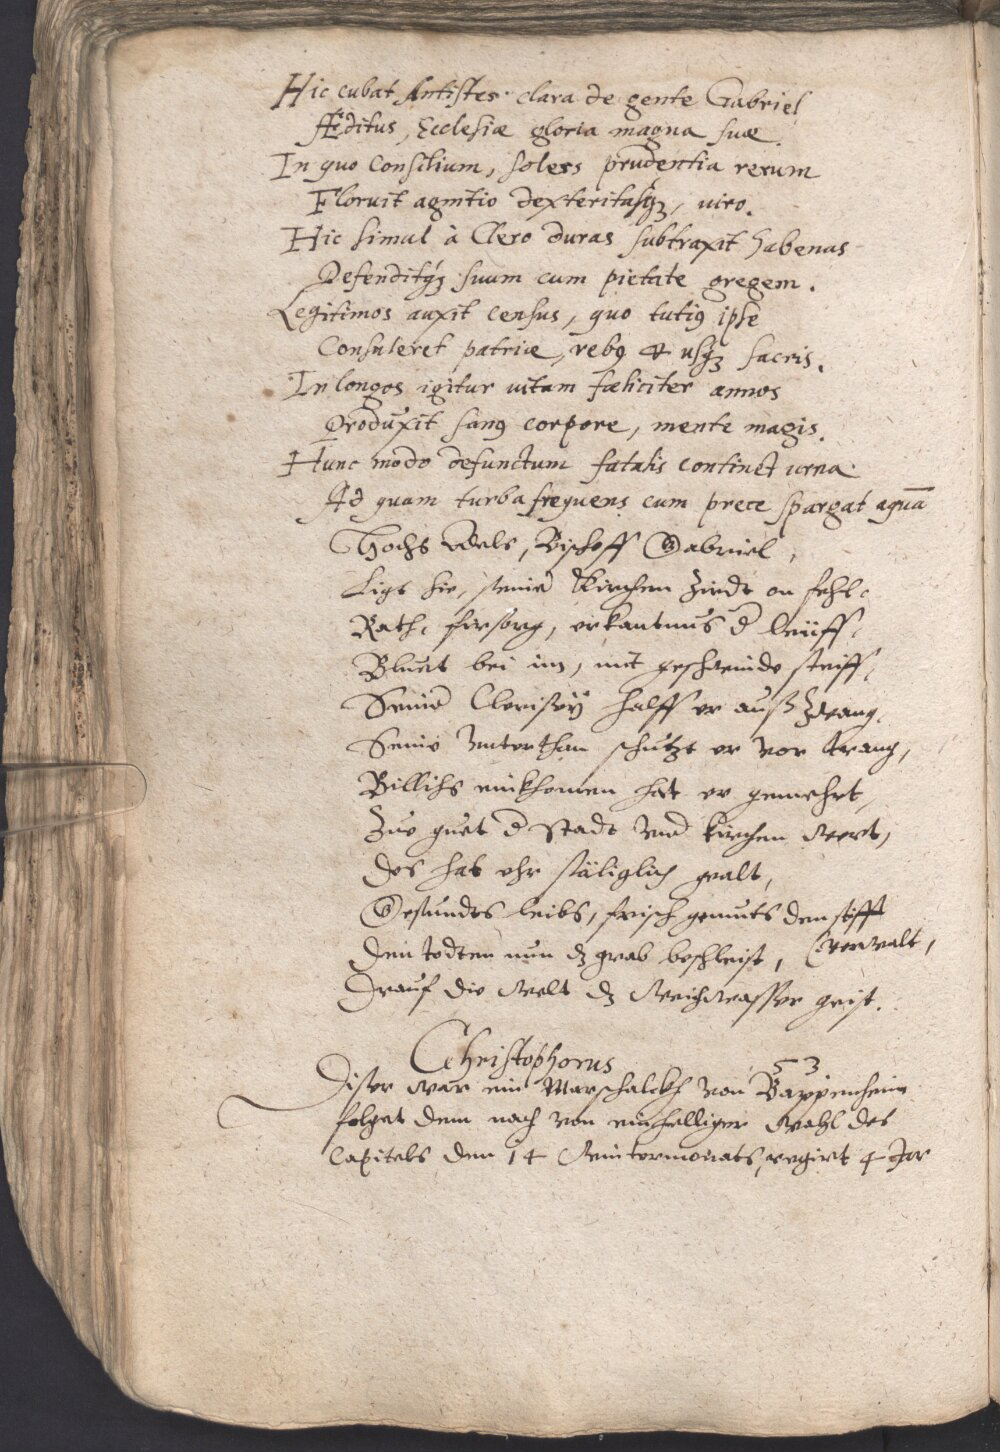 Hic cubat Antistes clara de gente Gabriel
Æditus, Ecclesiæ gloria magna suæ.
In quo Consilium, solers prudentia rerum
Floruit agnitio dexteritasqꝫ, uiro.
Hic simul à Clero duras subtraxit habenas
Defenditqꝫ suum cum pietate gregem.
Legitimos auxit census, quo tutiꝰ ipse
Consuleret patriæ, rebꝰ & usqꝫ sacris.
In longos igitur uitam fœliciter annos
Produxit sanꝰ corpore, mente magis.
Hunc modo defunctum fatalis continet urna
Ad quam turba frequens cum prece spargat aquā
Hochs Adels, Bischoff Gabriel,
Ligt hie, seiner Kirchen Zierdt on fehl.
Rath, firsorg, erkantnus d leüff,
Bluet bei im, mit geschwinde steiff,
Seine Clerisey halff er auß Zwang,
Seine Unterthan schutzt er vor trang,
Billichs einkhomen hat er gemehrt,
Zue guet d Stadt vnd kirchen wert,
Des hat ehr säliglich gealt,
Gesundts leibs, frisch gemuts den stifft
verwalt,
Den todten nun dz grab beschleist,
Drauf die Welt dz Weichwasser geist.
Christophorus 53
Diser war ein Marschalckh von Bappenheim
folget dem nach von einhelliger Wahl des
Capitels den 14 Wintermonats, regirt 4 Jar